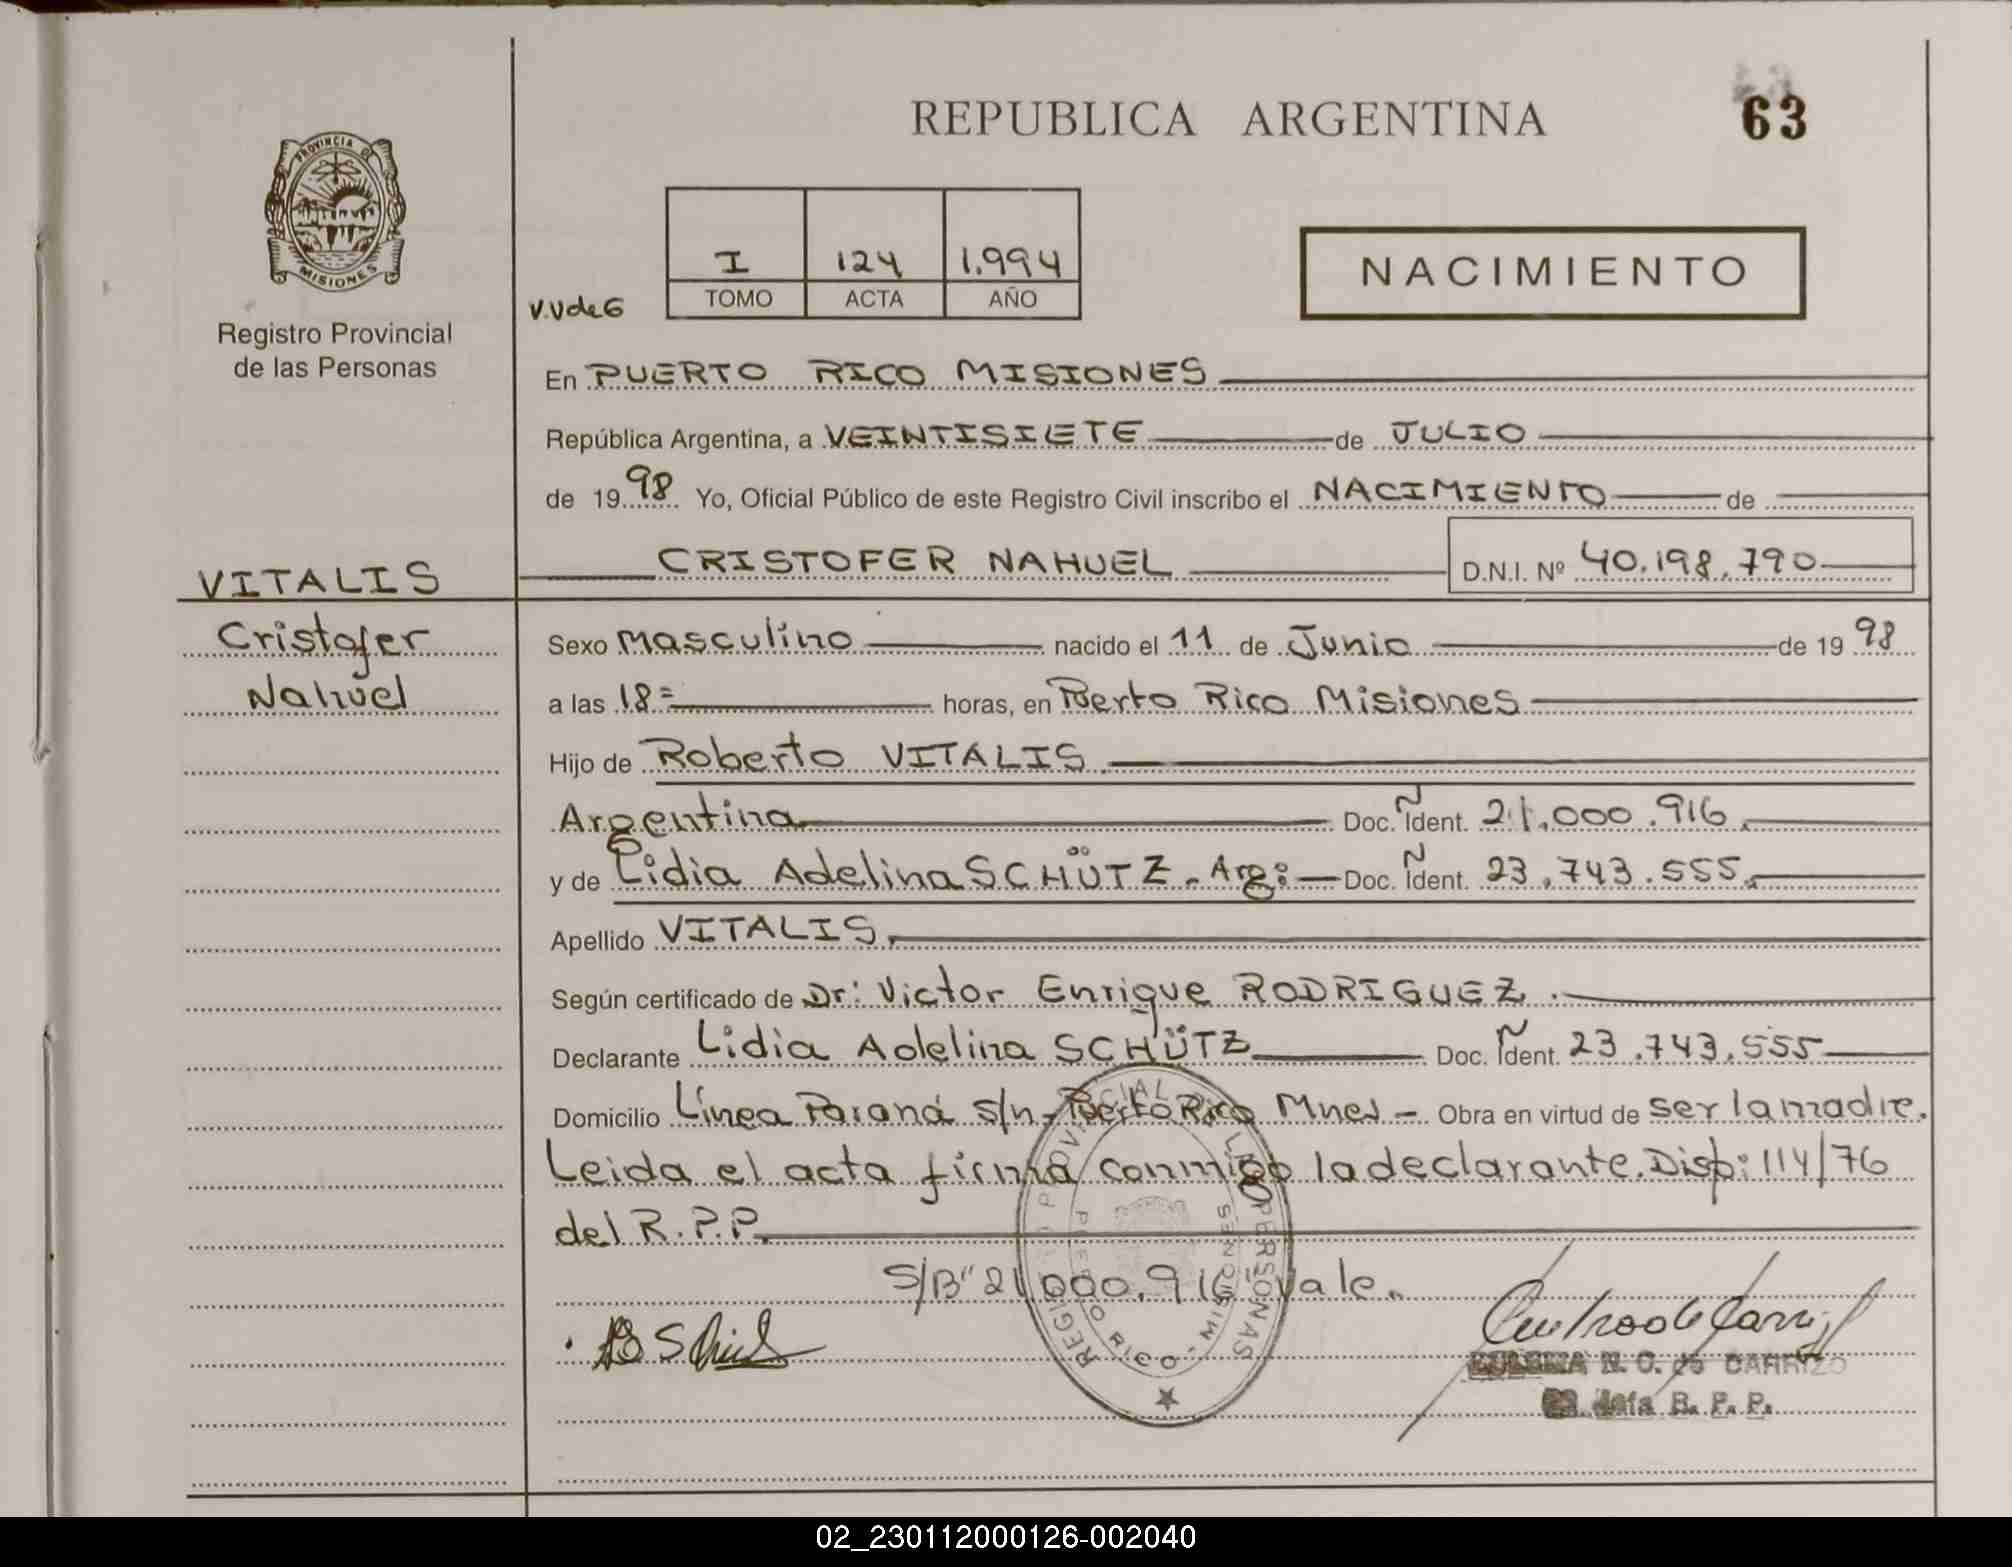 REPUBLICA ARGENTINA
63
PROVINCIA DE
MISIONES
Registro Provincial
de las Personas
I 124 1.994
TOMO ACTA AÑO
NACIMIENTO
V.V de G
En PUERTO RICO MISIONES
República Argentina, a VEINTISIETE de JULIO
de 19 98 Yo, Oficial Público de este Registro Civil inscribo el NACIMIENTO de
CRISTOFER NAHUEL D.N.I. Nº 40.198.790
VITALIS
Cristofer
Nahuel
Sexo Masculino nacido el 11 de Junio de 19 98
a las 18= horas, en Puerto Rico Misiones
Hijo de Roberto VITALIS
Argentina Doc. Ident. 21.000.916.
y de Lidia Adelina SCHÜTZ. Arg: Doc. Ident. 23.743.555.
Apellido VITALIS.
Según certificado de Dr: Victor Enrique RODRIGUEZ.
Declarante Lidia Adelina SCHÜTZ Doc. Ident. 23.743.555
Domicilio Línea Paraná s/n- Puerto Rico Mnes.- Obra en virtud de ser la madre.
Leida el acta firma conmigo la declarante. Disp: 114/76
del R.P.P.
S/B" 21.000.916" Vale.
REGISTRO PROVINCIAL DE LAS PERSONAS
PUERTO RICO - MISIONES
N. C. de CARRIZO
Jefa R. P. P.
02_230112000126-002040